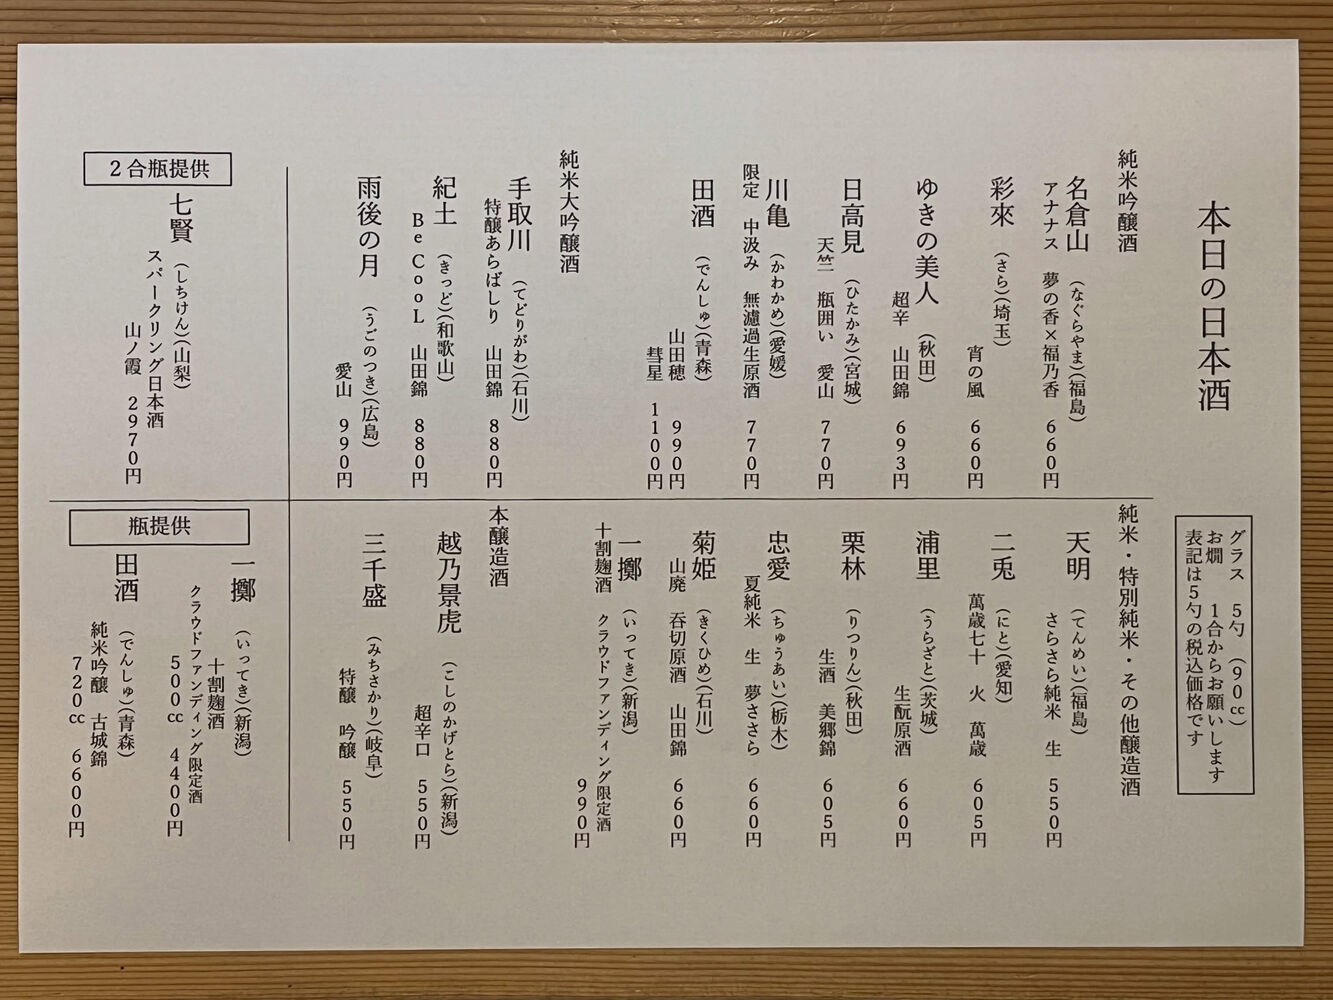 本日の日本酒
グラス 5勺 (90cc)
お燗 1合からお願いします
表記は5勺の税込価格です
純米吟醸酒
名倉山 (なぐらやま)(福島)
アナナス 夢の香×福乃香 660円
彩來 (さら)(埼玉)
宵の風 660円
ゆきの美人 (秋田)
超辛 山田錦 693円
日高見 (ひたかみ)(宮城)
天竺 瓶囲い 愛山 770円
川亀 (かわかめ)(愛媛)
限定 中汲み 無濾過生原酒 770円
田酒 (でんしゅ)(青森)
山田穂 990円
彗星 1100円
純米大吟醸酒
手取川 (てどりがわ)(石川)
特醸あらばしり 山田錦 880円
紀土 (きっど)(和歌山)
Be CooL 山田錦 880円
雨後の月 (うごのつき)(広島)
愛山 990円
純米・特別純米・その他醸造酒
天明 (てんめい)(福島)
さらさら純米 生 550円
二兎 (にと)(愛知)
萬歳七十 火 萬歳 605円
浦里 (うらざと)(茨城)
生酛原酒 660円
栗林 (りつりん)(秋田)
生酒 美郷錦 605円
忠愛 (ちゅうあい)(栃木)
夏純米 生 夢ささら 660円
菊姫 (きくひめ)(石川)
山廃 呑切原酒 山田錦 660円
一擲 (いってき)(新潟)
十割麹酒 クラウドファンディング限定酒
990円
本醸造酒
越乃景虎 (こしのかげとら)(新潟)
超辛口 550円
三千盛 (みちさかり)(岐阜)
特醸 吟醸 550円
2合瓶提供
七賢 (しちけん)(山梨)
スパークリング日本酒
山ノ霞 2970円
瓶提供
一擲 (いってき)(新潟)
十割麹酒
クラウドファンディング限定酒
500cc 4400円
田酒 (でんしゅ)(青森)
純米吟醸 古城錦
720cc 6600円